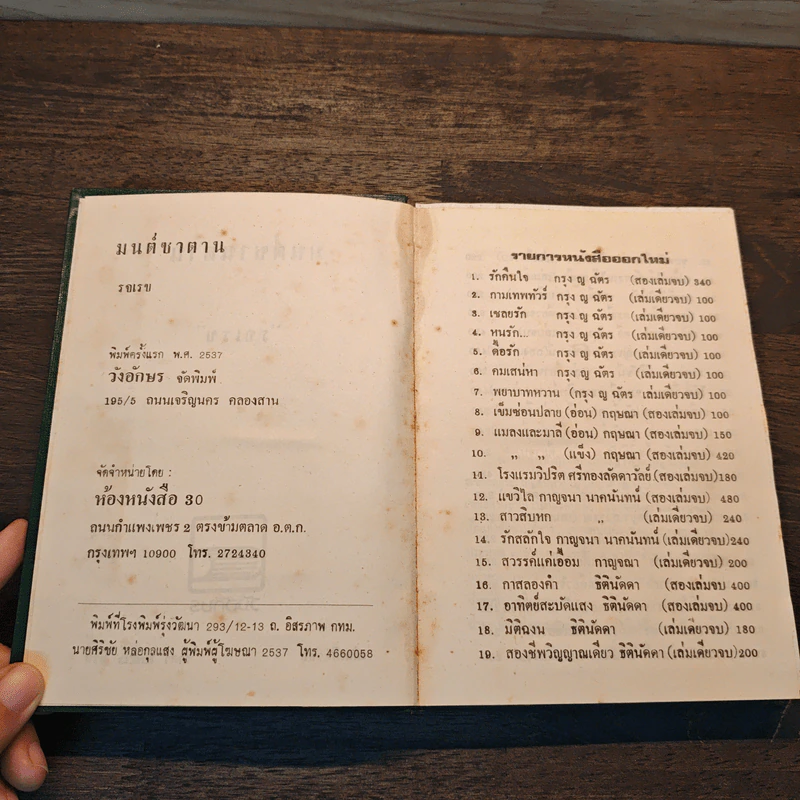 มนต์ซาตาน
รจเรข
พิมพ์ครั้งแรก พ.ศ. 2537
วังอักษร จัดพิมพ์
195/5 ถนนเจริญนคร คลองสาน
จัดจำหน่ายโดย :
ห้องหนังสือ 30
ถนนกำแพงเพชร 2 ตรงข้ามตลาด อ.ต.ก.
กรุงเทพฯ 10900 โทร. 2724340
พิมพ์ที่โรงพิมพ์รุ่งวัฒนา 293/12-13 ถ. อิสรภาพ กทม.
นายศิริชัย หล่อกุลแสง ผู้พิมพ์ผู้โฆษณา 2537 โทร. 4660058
รายการหนังสือออกใหม่
1. รักคืนใจ กรุง ญ ฉัตร (สองเล่มจบ) 340
2. กามเทพทัวร์ กรุง ญ ฉัตร (เล่มเดียวจบ) 100
3. เชลยรัก กรุง ญ ฉัตร (เล่มเดียวจบ) 100
4. หนูรัก... กรุง ญ ฉัตร (เล่มเดียวจบ) 100
5. ดื้อรัก กรุง ญ ฉัตร (เล่มเดียวจบ) 100
6. คมเสน่หา กรุง ญ ฉัตร (เล่มเดียวจบ) 100
7. พยาบาทหวาน (กรุง ญ ฉัตร เล่มเดียวจบ) 100
8. เข็มซ่อนปลาย (อ่อน) กฤษณา (สองเล่มจบ) 100
9. แมลงและมาลี (อ่อน) กฤษณา (สองเล่มจบ) 150
10. ,, ,, (แข็ง) กฤษณา (สองเล่มจบ) 420
11. โรงแรมวิปริต ศรีทองลัดดาวัลย์ (เล่มเดียวจบ)180
12. แขวิไล กาญจนา นาคนันทน์ (สองเล่มจบ) 480
13. สาวสิบหก ,, (เล่มเดียวจบ) 240
14. รักสลักใจ กาญจนา นาคนันทน์ (เล่มเดียวจบ)240
15. สวรรค์แค่เอื้อม กาญจณา (เล่มเดียวจบ) 200
16. กาสลองคำ ธิตินัดดา (สองเล่มจบ 400
17. อาทิตย์สะบัดแสง ธิตินัดดา (สองเล่มจบ) 400
18. มิติฉงน ธิตินัดดา (เล่มเดียวจบ) 180
19. สองชีพวิญญาณเดียว ธิตินัดดา (เล่มเดียวจบ)200